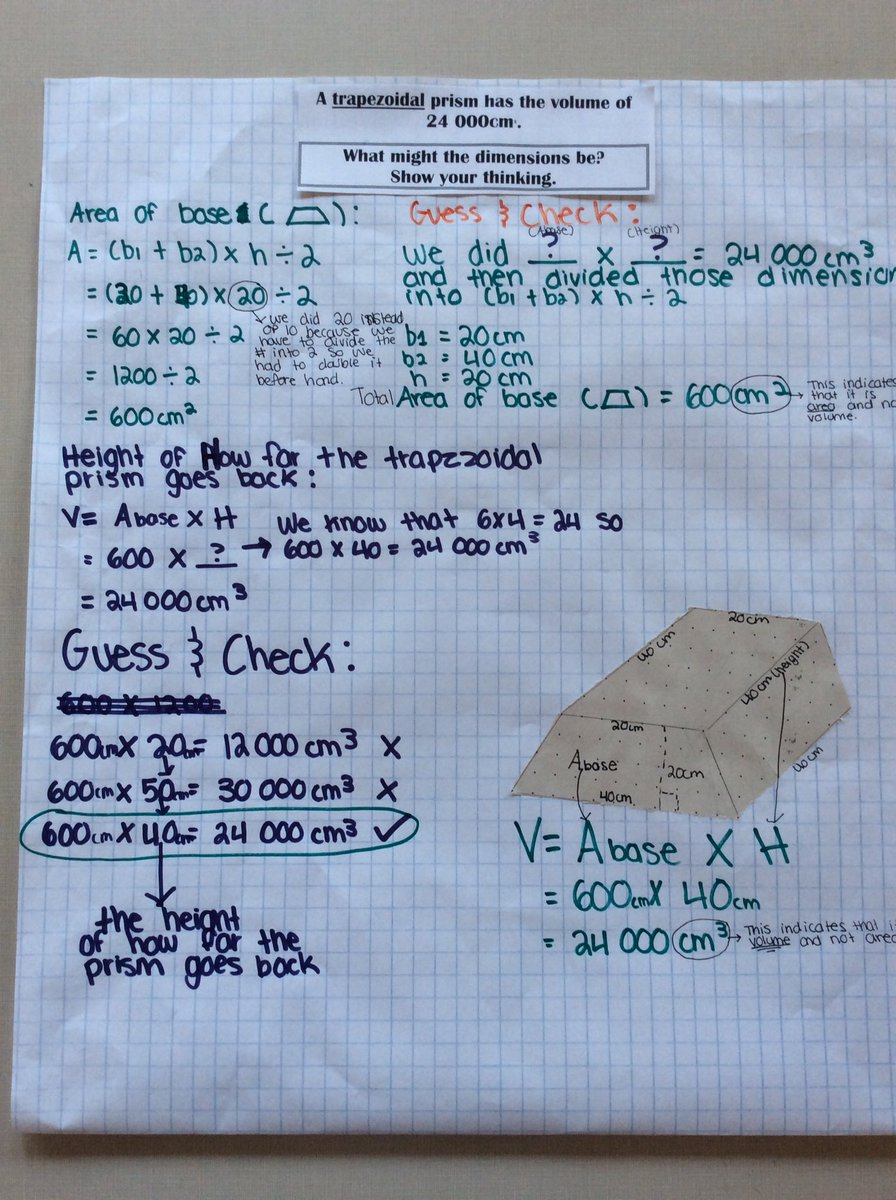 A trapezoidal prism has the volume of
24 000cm³.
What might the dimensions be?
Show your thinking.
Area of base ( ):
A = (b1 + b2) x h ÷ 2
= (20 + 40) x 20 ÷ 2
= 60 x 20 ÷ 2
= 1200 ÷ 2
= 600 cm²
we did 20 instead
of 10 because we
have to divide the
# into 2 so we
had to double it
before hand.
Guess & Check:
(Abase) (Height)
We did ? x ? = 24 000 cm³
and then divided those dimension
into (b1 + b2) x h ÷ 2
b1 = 20cm
b2 = 40 cm
h = 20 cm
Total Area of base ( ) = 600 cm²
This indicates
that it is
area and no
volume.
Height of How far the trapezzoidal
prism goes back:
V= Abase x H
= 600 x ?
= 24 000 cm³
We know that 6x4 = 24 so
600 x 40 = 24 000 cm³
Guess & Check:
600 x 1200
600cm x 20cm = 12 000 cm³ X
600cm x 50cm = 30 000 cm³ X
600cm x 40cm = 24 000 cm³ ✓
the height
of how far the
prism goes back
20cm
40 cm
40 cm (height)
20cm
Abase
20cm
40cm
40cm
V= Abase X H
= 600cm X 40cm
= 24 000 cm³
This indicates that i
volume and not area